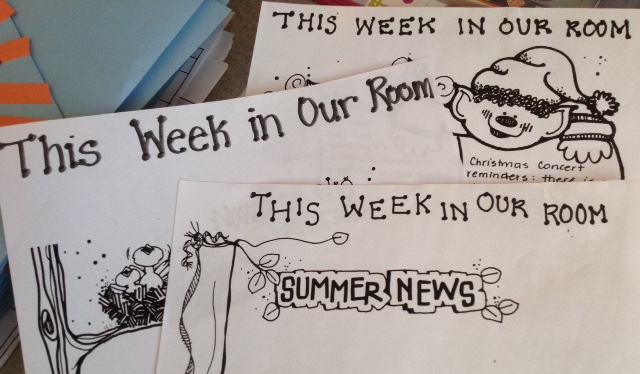 THIS WEEK IN OUR ROOM
Christmas Concert
reminders: there is
This Week in Our Room
THIS WEEK IN OUR ROOM
SUMMER NEWS